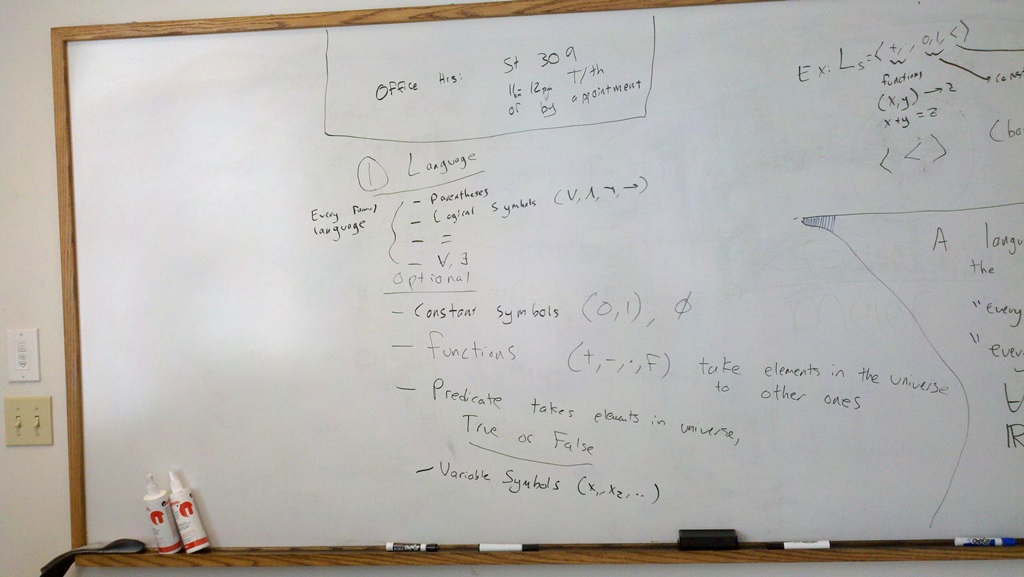 Office Hrs: St 309
11am-12pm T/th
or by appointment
① Language
Every formal language
- Parentheses
- Logical Symbols (∨, ∧, ¬, →)
- =
- ∀, ∃
Optional
- Constant Symbols (0,1), ∅
- functions (+, -, ·, F) take elements in the universe
to other ones
- Predicate takes elements in universe,
True or False
- Variable Symbols (x₁, x₂, ..)
Ex: L_s = < +, , 0, 1, < >
functions
(x,y) → z
x+y = z
< < >
const
(bo
A langu
the
"every
"every
∀
IR